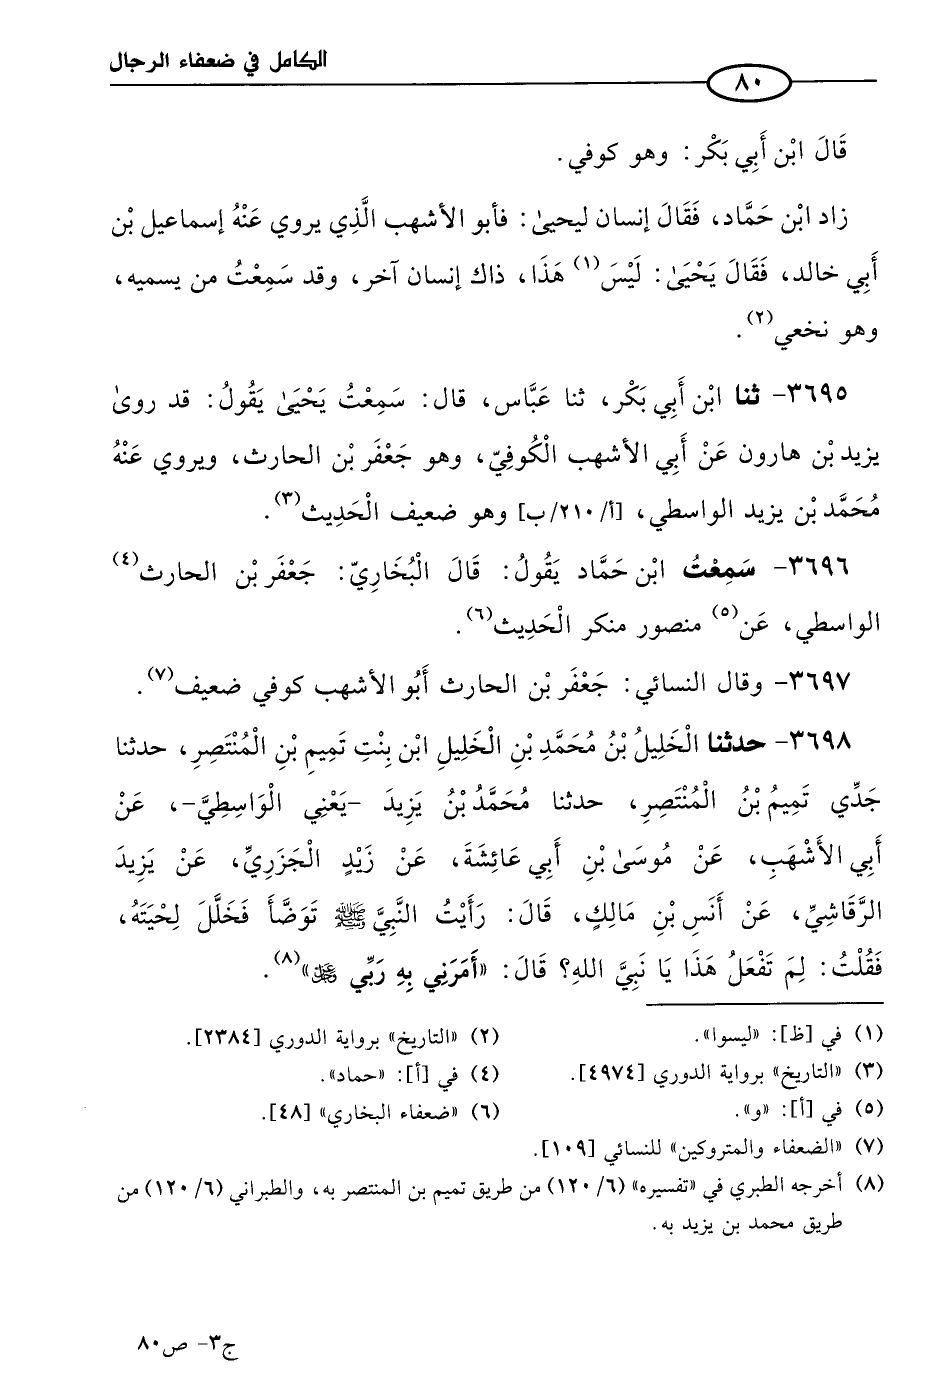 الكامل في ضعفاء الرجال
٨٠
قَالَ ابْن أَبِي بَكْر: وهو كوفي.
زاد ابْن حَمَّاد، فَقَالَ إنسان ليحيىٰ: فأبو الأشهب الَّذِي يروي عَنْهُ إسماعيل بْن
أَبِي خالد، فَقَالَ يَحْيَىٰ: لَيْسَ(١) هَذَا، ذاك إنسان آخر، وقد سَمِعْتُ من يسميه،
وهو نخعي(٢).
٣٦٩٥- ثنا ابْن أَبِي بَكْر، ثنا عَبَّاس، قال: سَمِعْتُ يَحْيَىٰ يَقُولُ: قد روىٰ
يزيد بْن هارون عَنْ أَبِي الأشهب الْكُوفِيّ، وهو جَعْفَر بْن الحارث، ويروي عَنْهُ
مُحَمَّد بْن يزيد الواسطي، [أ/٢١٠/ب] وهو ضعيف الْحَدِيث(٣).
٣٦٩٦- سَمِعْتُ ابْن حَمَّاد يَقُولُ: قَالَ الْبُخَارِيّ: جَعْفَر بْن الحارث(٤)
الواسطي، عَن(٥) منصور منكر الْحَدِيث(٦).
٣٦٩٧- وقال النسائي: جَعْفَر بْن الحارث أَبُو الأشهب كوفي ضعيف(٧).
٣٦٩٨- حدثنا الْخَلِيلُ بْنُ مُحَمَّدِ بْنِ الْخَلِيلِ ابْن بِنْتِ تَمِيمِ بْنِ الْمُنْتَصِرِ، حدثنا
جَدِّي تَمِيمُ بْنُ الْمُنْتَصِرِ، حدثنا مُحَمَّدُ بْنُ يَزِيدَ -يَعْنِي الْوَاسِطِيَّ-، عَنْ
أَبِي الأَشْهَبِ، عَنْ مُوسَىٰ بْنِ أَبِي عَائِشَةَ، عَنْ زَيْدٍ الْجَزَرِيِّ، عَنْ يَزِيدَ
الرَّقَاشِيِّ، عَنْ أَنَسِ بْنِ مَالِكٍ، قَالَ: رَأَيْتُ النَّبِيَّ ﷺ تَوَضَّأَ فَخَلَّلَ لِحْيَتَهُ،
فَقُلْتُ: لِمَ تَفْعَلُ هَذَا يَا نَبِيَّ اللهِ؟ قَالَ: «أَمَرَنِي بِهِ رَبِّي ﷿»(٨).
(١) في [ظ]: «ليسوا». (٢) «التاريخ» برواية الدوري [٢٣٨٤].
(٣) «التاريخ» برواية الدوري [٤٩٧٤]. (٤) في [أ]: «حماد».
(٥) في [أ]: «و». (٦) «ضعفاء البخاري» [٤٨].
(٧) «الضعفاء والمتروكين» للنسائي [١٠٩].
(٨) أخرجه الطبري في «تفسيره» (٦/ ١٢٠) من طريق تميم بن المنتصر به، والطبراني (٦/ ١٢٠) من
طريق محمد بن يزيد به.
ج٣- ص٨٠